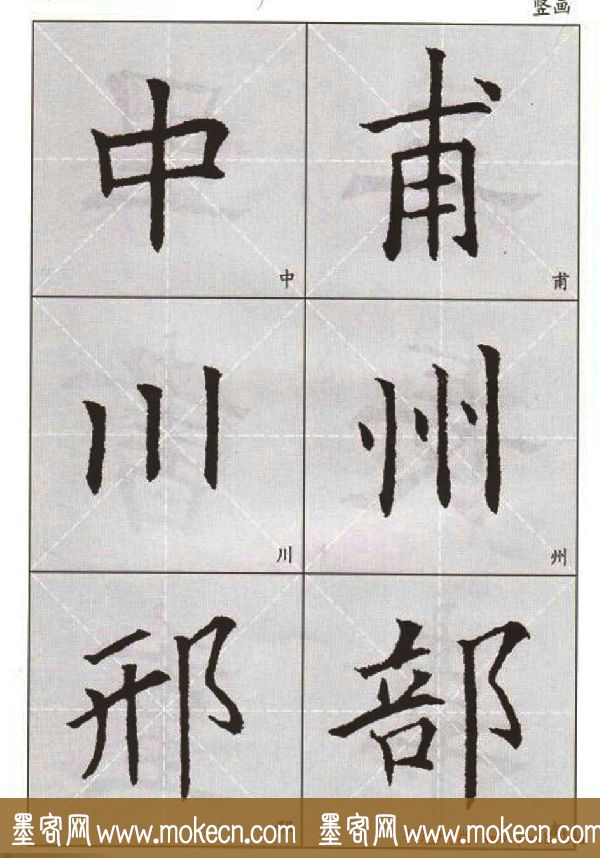 竖画
中 甫
中 甫
川 州
川 州
邢 部
墨客网 www.mokecn.com 墨客网 www.mokecn.com